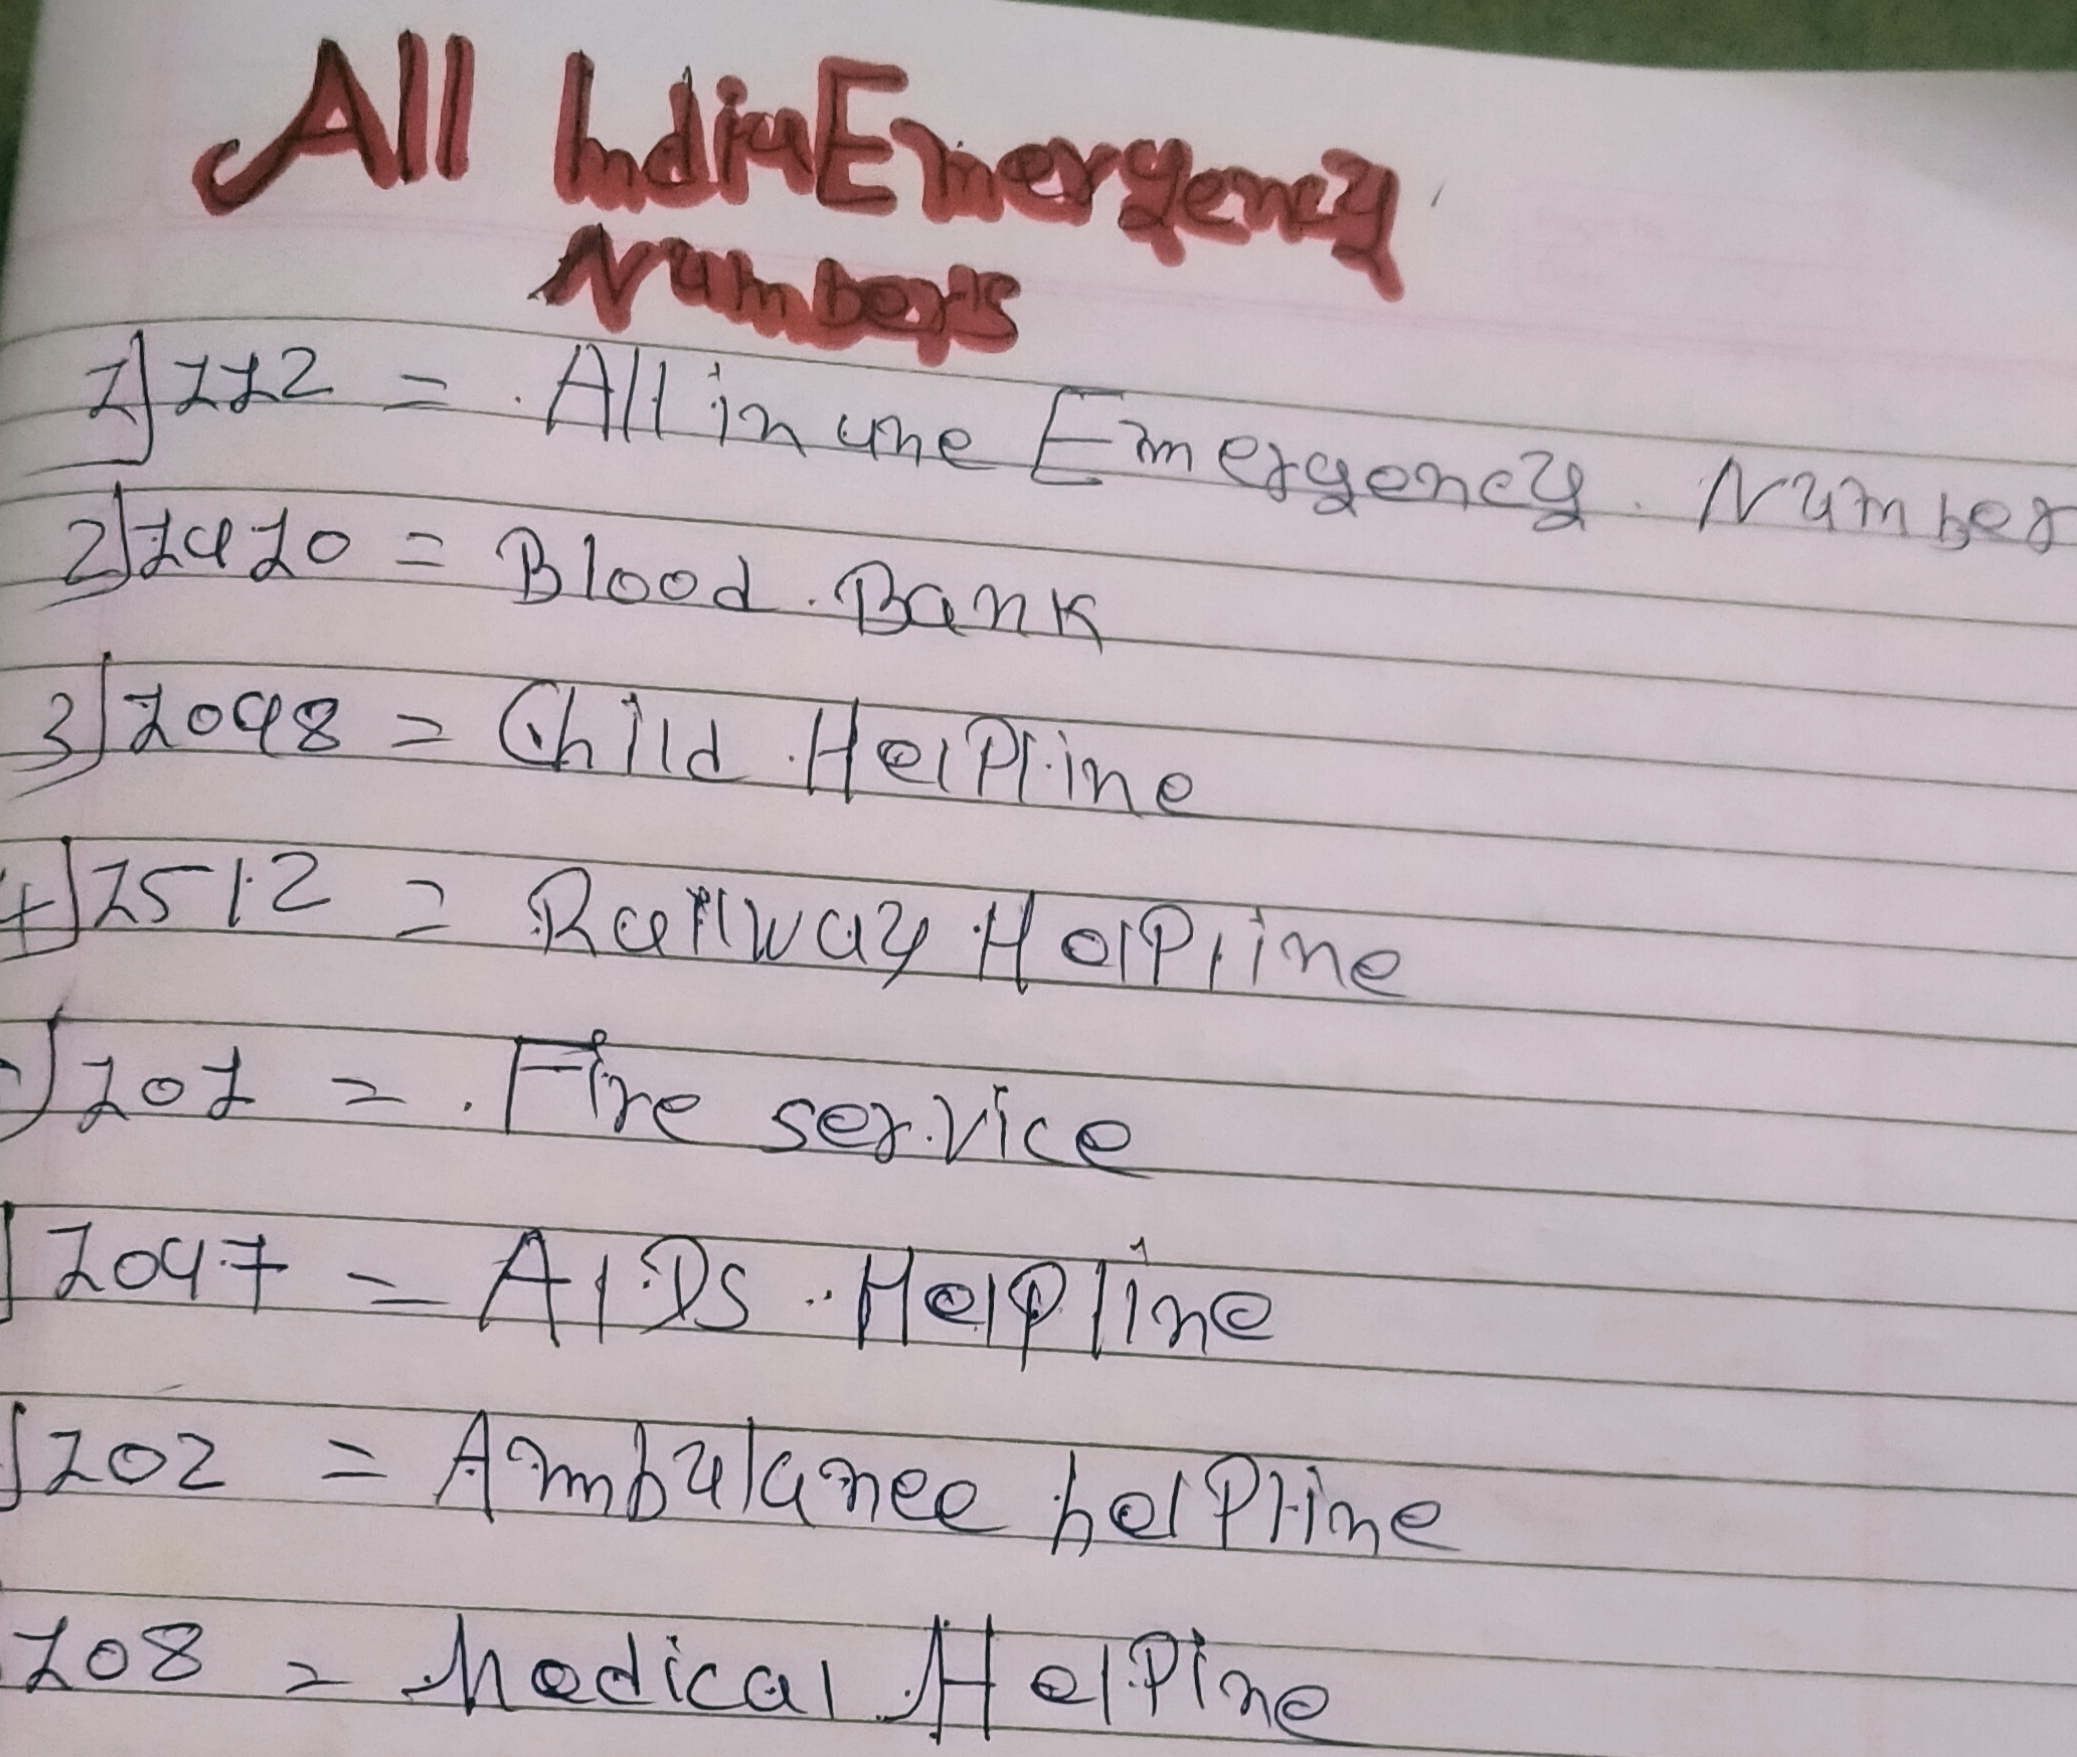 All India Emergency
Numbers
1] 112 = All in one Emergency Number
2] 1910 = Blood Bank
3] 1098 = Child HelPline
4] 1512 = Railway HelPline
] 101 = Fire service
] 1097 = AIDS HelPline
] 102 = Ambulance helPline
108 = Medical HelPine